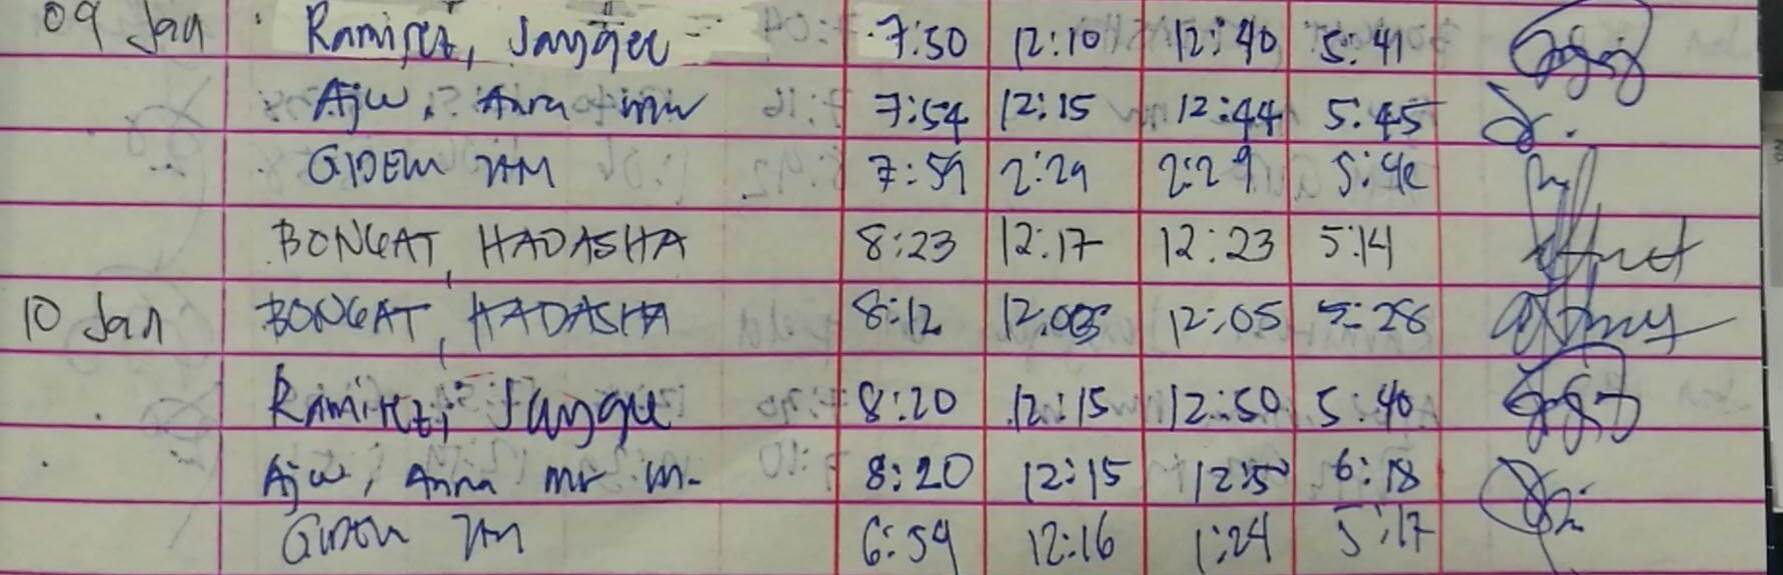 09 Jan Ramirez, Jangee 7:50 12:10 12:40 5:41
Ajw, Anna mw 7:54 12:15 12:44 5:45
GIDEW 7:59 2:29 2:29 5:42
BONGAT, HADASHA 8:23 12:17 12:23 5:14
10 Jan BONGAT, HADASHA 8:12 12:05 5:28
Ramirez, Jangee 8:20 12:15 12:50 5:40
Ajw, Anna mr m. 8:20 12:15 12:5 6:18
6:59 12:16 1:24 5:17